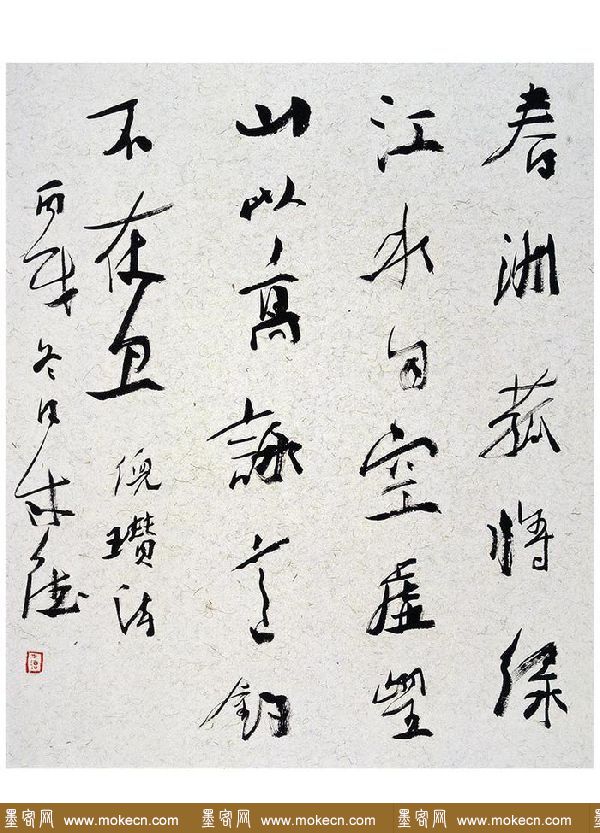 春洲菰將綠
江水自空虛望
山以高詠意釣
不在魚 倪瓚詩
丙戌冬日
墨客网 www.mokecn.com 墨客网 www.mokecn.com 墨客网 www.mokecn.com